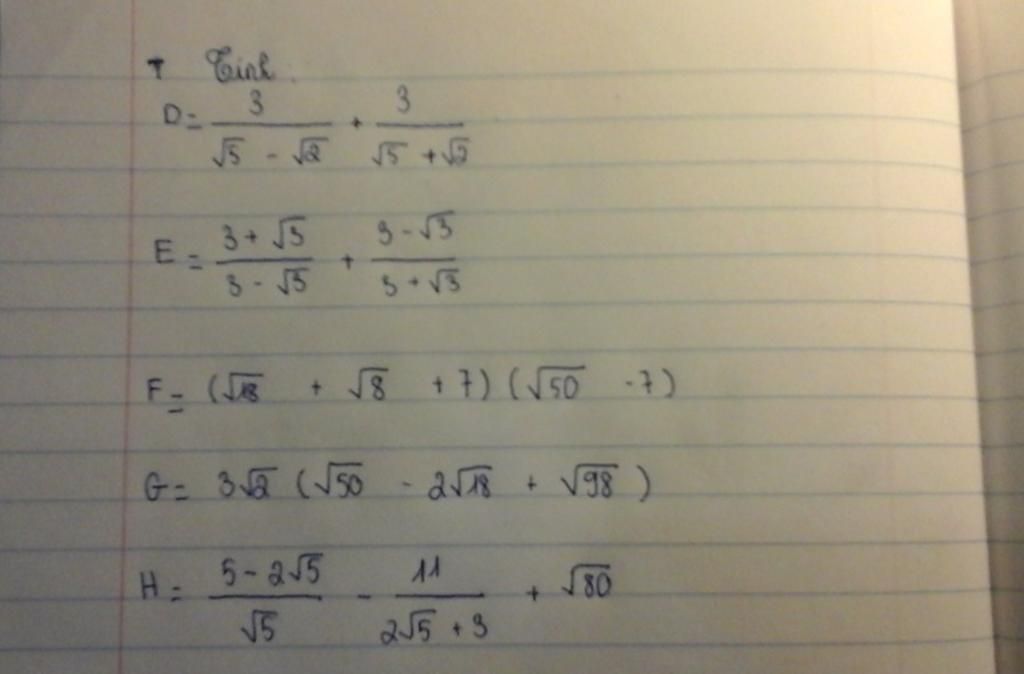 + Tính.
D = 3/(√5 - √2) + 3/(√5 + √2)
E = (3 + √3)/(3 - √3) + (3 - √3)/(3 + √3)
F = (√18 + √8 + 7)(√50 - 7)
G = 3√2 (√50 - 2√18 + √98)
H = (5 - 2√5)/√5 - 11/(2√5 + 3) + √80